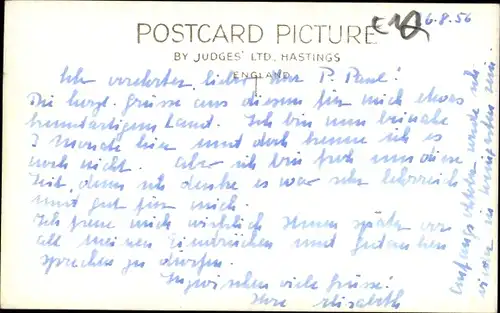 POSTCARD PICTURE
BY JUDGES' LTD, HASTINGS
ENGLAND
6.8.56
Sehr verehrter, lieber Herr P. Paul!
Die herzl. Grüsse aus diesem für mich etwas
fremdartigem Land. Ich bin nun beinahe
2 Monate hier und doch kenne ich es
noch nicht. Aber ich bin froh um diese
Zeit, denn ich denke es war sehr lehrreich
und gut für mich.
Ich freue mich wirklich Ihnen später von
all meinen Eindrücken und Gedanken
sprechen zu dürfen.
Inzwischen viele Grüsse!
Ihre Elisabeth
Anfangs Oktober werde ich
wieder in sein